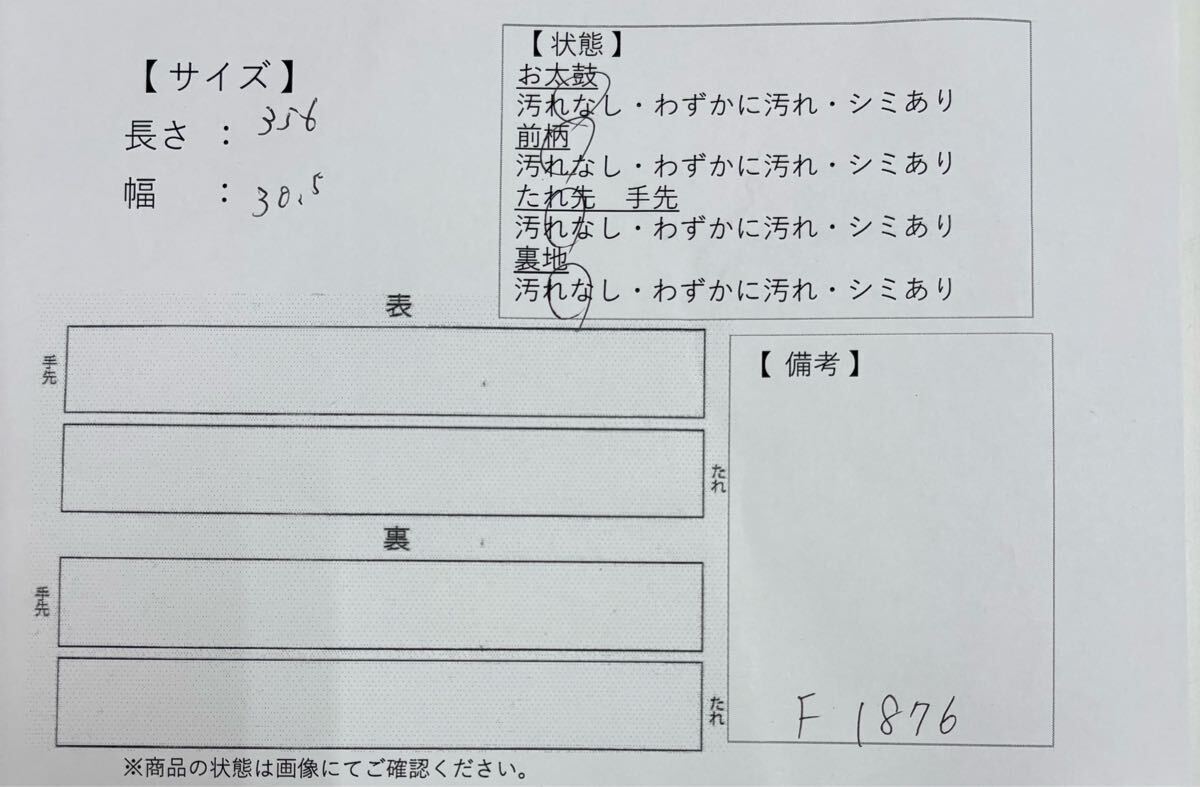 【サイズ】
長さ ： 356
幅 ： 30.5
【状態】
お太鼓
汚れなし・わずかに汚れ・シミあり
前柄
汚れなし・わずかに汚れ・シミあり
たれ先 手先
汚れなし・わずかに汚れ・シミあり
裏地
汚れなし・わずかに汚れ・シミあり
表
手先
たれ
裏
手先
たれ
【備考】
F 1876
※商品の状態は画像にてご確認ください。